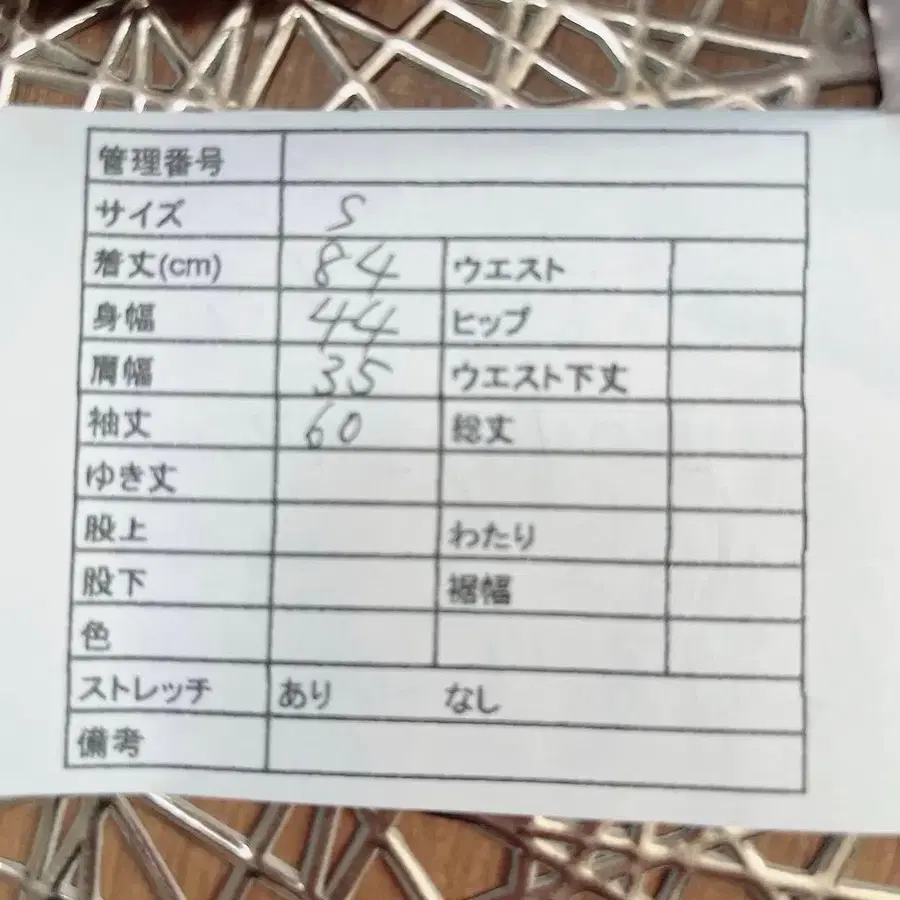 管理番号
サイズ S
着丈(cm) 84 ウエスト
身幅 44 ヒップ
肩幅 35 ウエスト下丈
袖丈 60 総丈
ゆき丈
股上 わたり
股下 裾幅
色
ストレッチ あり なし
備考